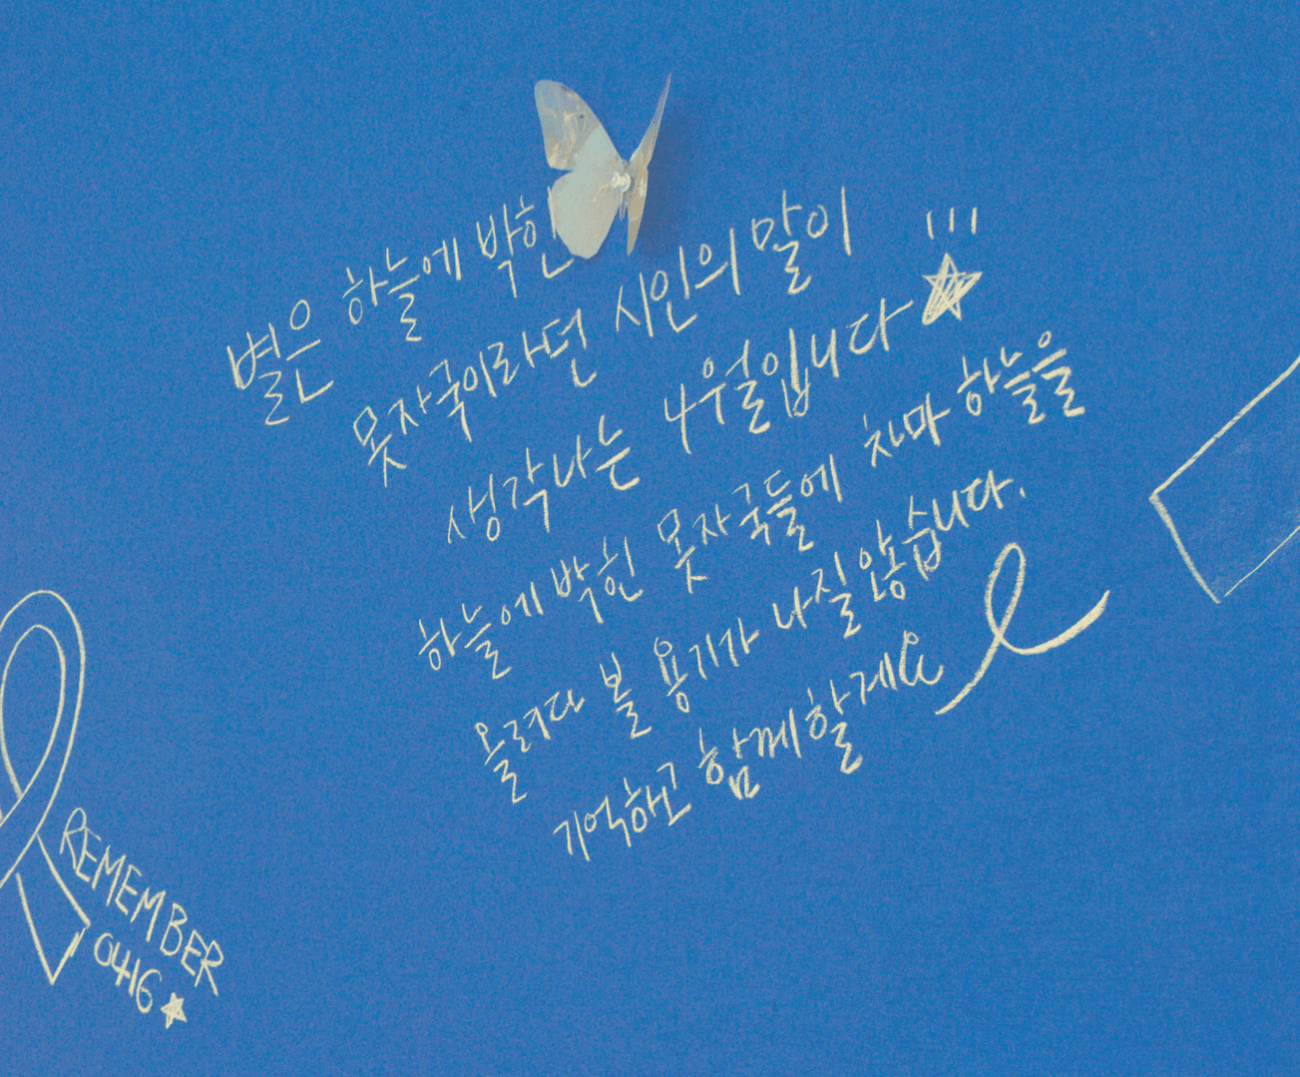 별은 하늘에 박힌
못자국이라던 시인의 말이
생각나는 4월입니다
하늘에 박힌 못자국들에 차마 하늘을
올려다 볼 용기가 나질 않습니다.
기억하고 함께할게요
REMEMBER
0416